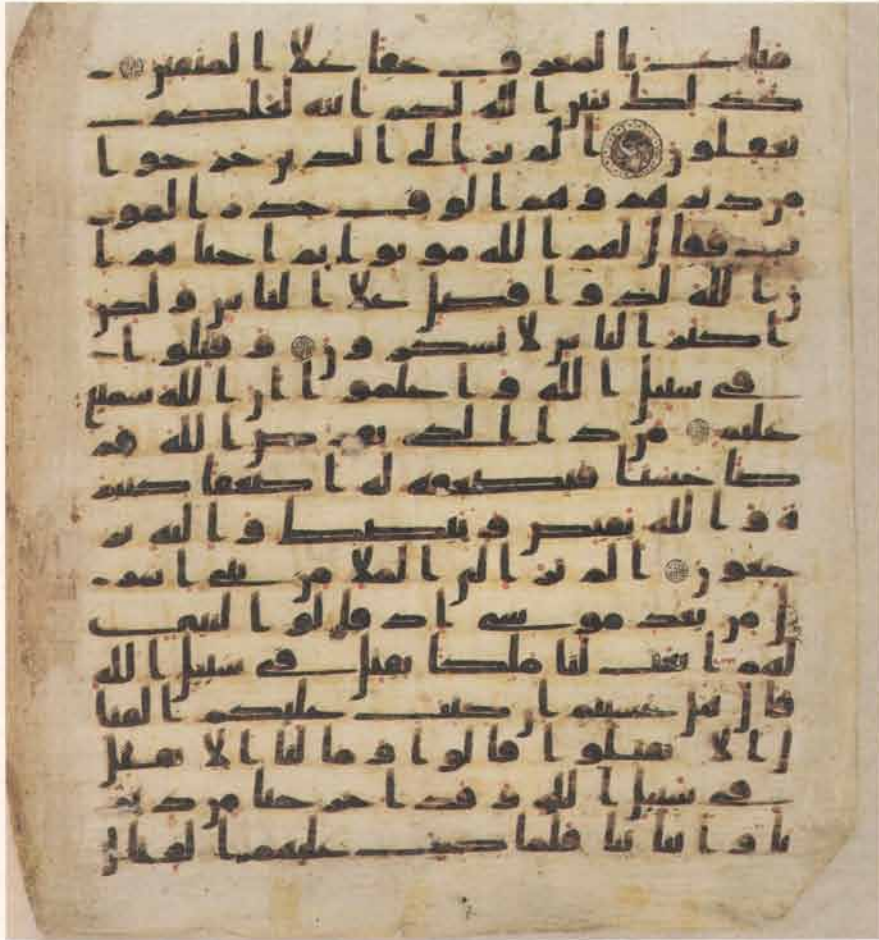 متاع بالمعروف حقا علا المتقين
كذلك يبين الله لكم ايته لعلكم
تعقلون الم تر الى الذين خرجوا
من ديرهم وهم الوف حذر المو
ت فقال لهم الله موتوا ثم احياهم ا
ن الله لذو فضل علا الناس ولكن
اكثر الناس لا يشكرون وقتلوا
في سبيل الله واعلموا ان الله سميع
عليم من ذا الذي يقرض الله قر
ضا حسنا فيضعفه له اضعفا كثير
ة والله يقبض ويبصط واليه تر
جعون الم تر الى الملا من بني اسر
ل من بعد موسى اذ قالوا لنبي
لهم ابعث لنا ملكا نقتل في سبيل الله
قال هل عسيتم ان كتب عليكم القتا
ل الا تقتلوا قالوا وما لنا الا نقتل
في سبيل الله وقد اخرجنا من دير
نا وابنائنا فلما كتب عليهم القتال